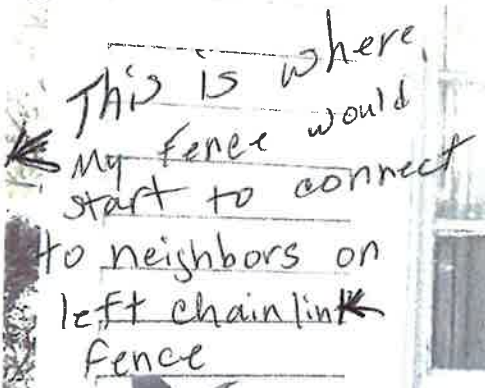 This is where
My fence would
start to connect
to neighbors on
left chainlink
fence